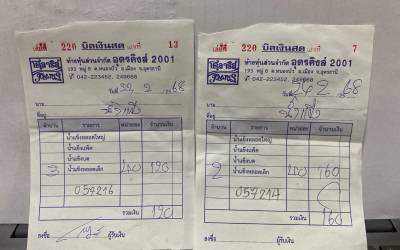 เล่มที่ 220 บิลเงินสด เลขที่ 13
ห้างหุ้นส่วนจำกัด อุดรคิงส์ 2001
193 หมู่ 6 ต.หนองบัว อ.เมือง จ.อุดรธานี
042-223452, 249668
วันที่ 22 2 68
นาม
ที่อยู่
จำนวน รายการ หน่วยละ จำนวนเงิน
น้ำแข็งหลอดใหญ่
น้ำแข็งแพ็ค
น้ำแข็งบด
3 น้ำแข็งหลอดเล็ก 190
057216
รวมเงิน 190
ลงชื่อ ผู้รับเงิน
เล่มที่ 220 บิลเงินสด เลขที่ 7
ห้างหุ้นส่วนจำกัด อุดรคิงส์ 2001
193 หมู่ 6 ต.หนองบัว อ.เมือง จ.อุดรธานี
042-223452, 249668
วันที่ 24 2 68
นาม
ที่อยู่
จำนวน รายการ หน่วยละ จำนวนเงิน
น้ำแข็งหลอดใหญ่
น้ำแข็งแพ็ค
น้ำแข็งบด
2 น้ำแข็งหลอดเล็ก 160
057214
รวมเงิน 160
ลงชื่อ ผู้รับเงิน